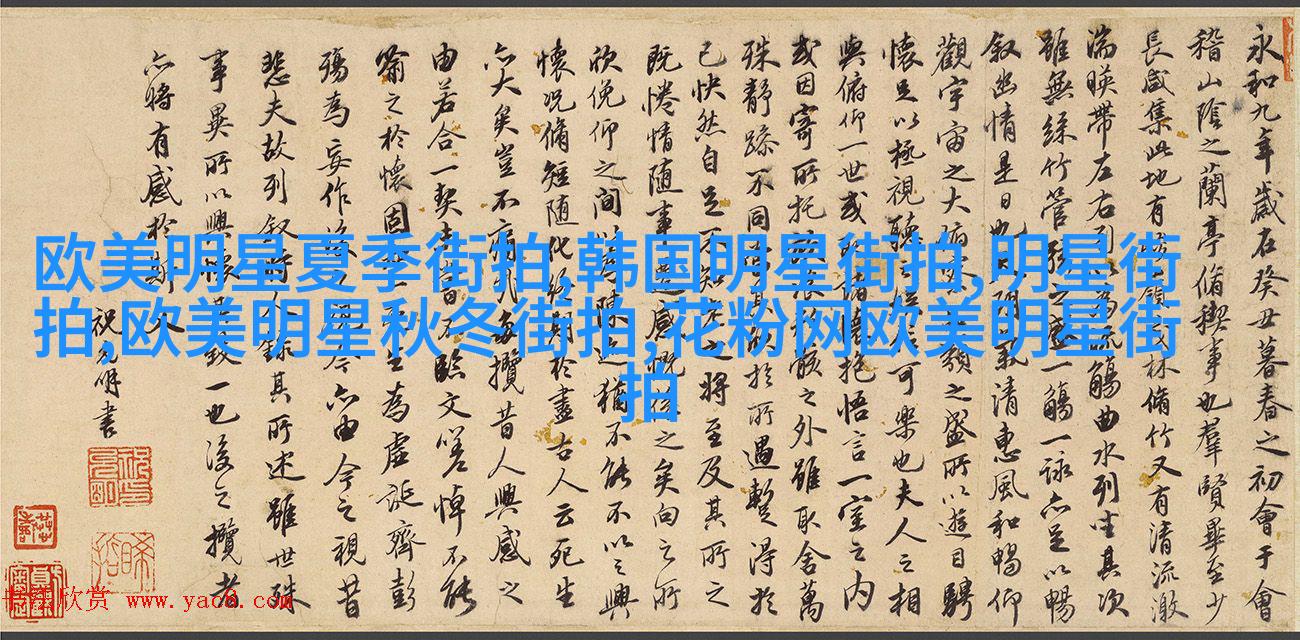 欧美明星夏季街拍,韩国明星街拍,明星街
拍,欧美明星秋冬街拍,花粉网欧美明星街
拍
永和九年歲在癸丑暮春之初會于會
稽山陰之蘭亭脩稧事也羣賢畢至少
長咸集此地有領茂林脩竹又有清流激
湍暎帶左右引以為流觴曲水列坐其次
雖無絲竹管弦之盛一觴一詠亦足以暢
叙幽情是日也朗氣清惠風和暢仰
觀宇宙之大俯類之盛所以遊目騁
懷足以極視聽信可樂也夫人之相
與俯仰一世或諸懷抱悟言一室之內
或因寄所托浪骸之外雖取舍萬
殊静躁不同其於所遇蹔得於
己快然自足不知老之將至及其所之
既惓情随事遷感慨係之矣向之所
欣俛仰之間陳迹猶不能不以之興
懷况脩短随化終期於盡古人云死生
亦大矣豈不痛每攬昔人興感之
由若合一契未嘗不臨文嗟悼不能
喻之於懷固生為虛誕齊彭
殤為妄作後之今亦由今之視昔
悲夫故列叙時人錄其所述雖世殊
事異所以興懷其致一也後之攬者
亦將有感於斯文
祝允明書
书法欣赏 www.yac8.com